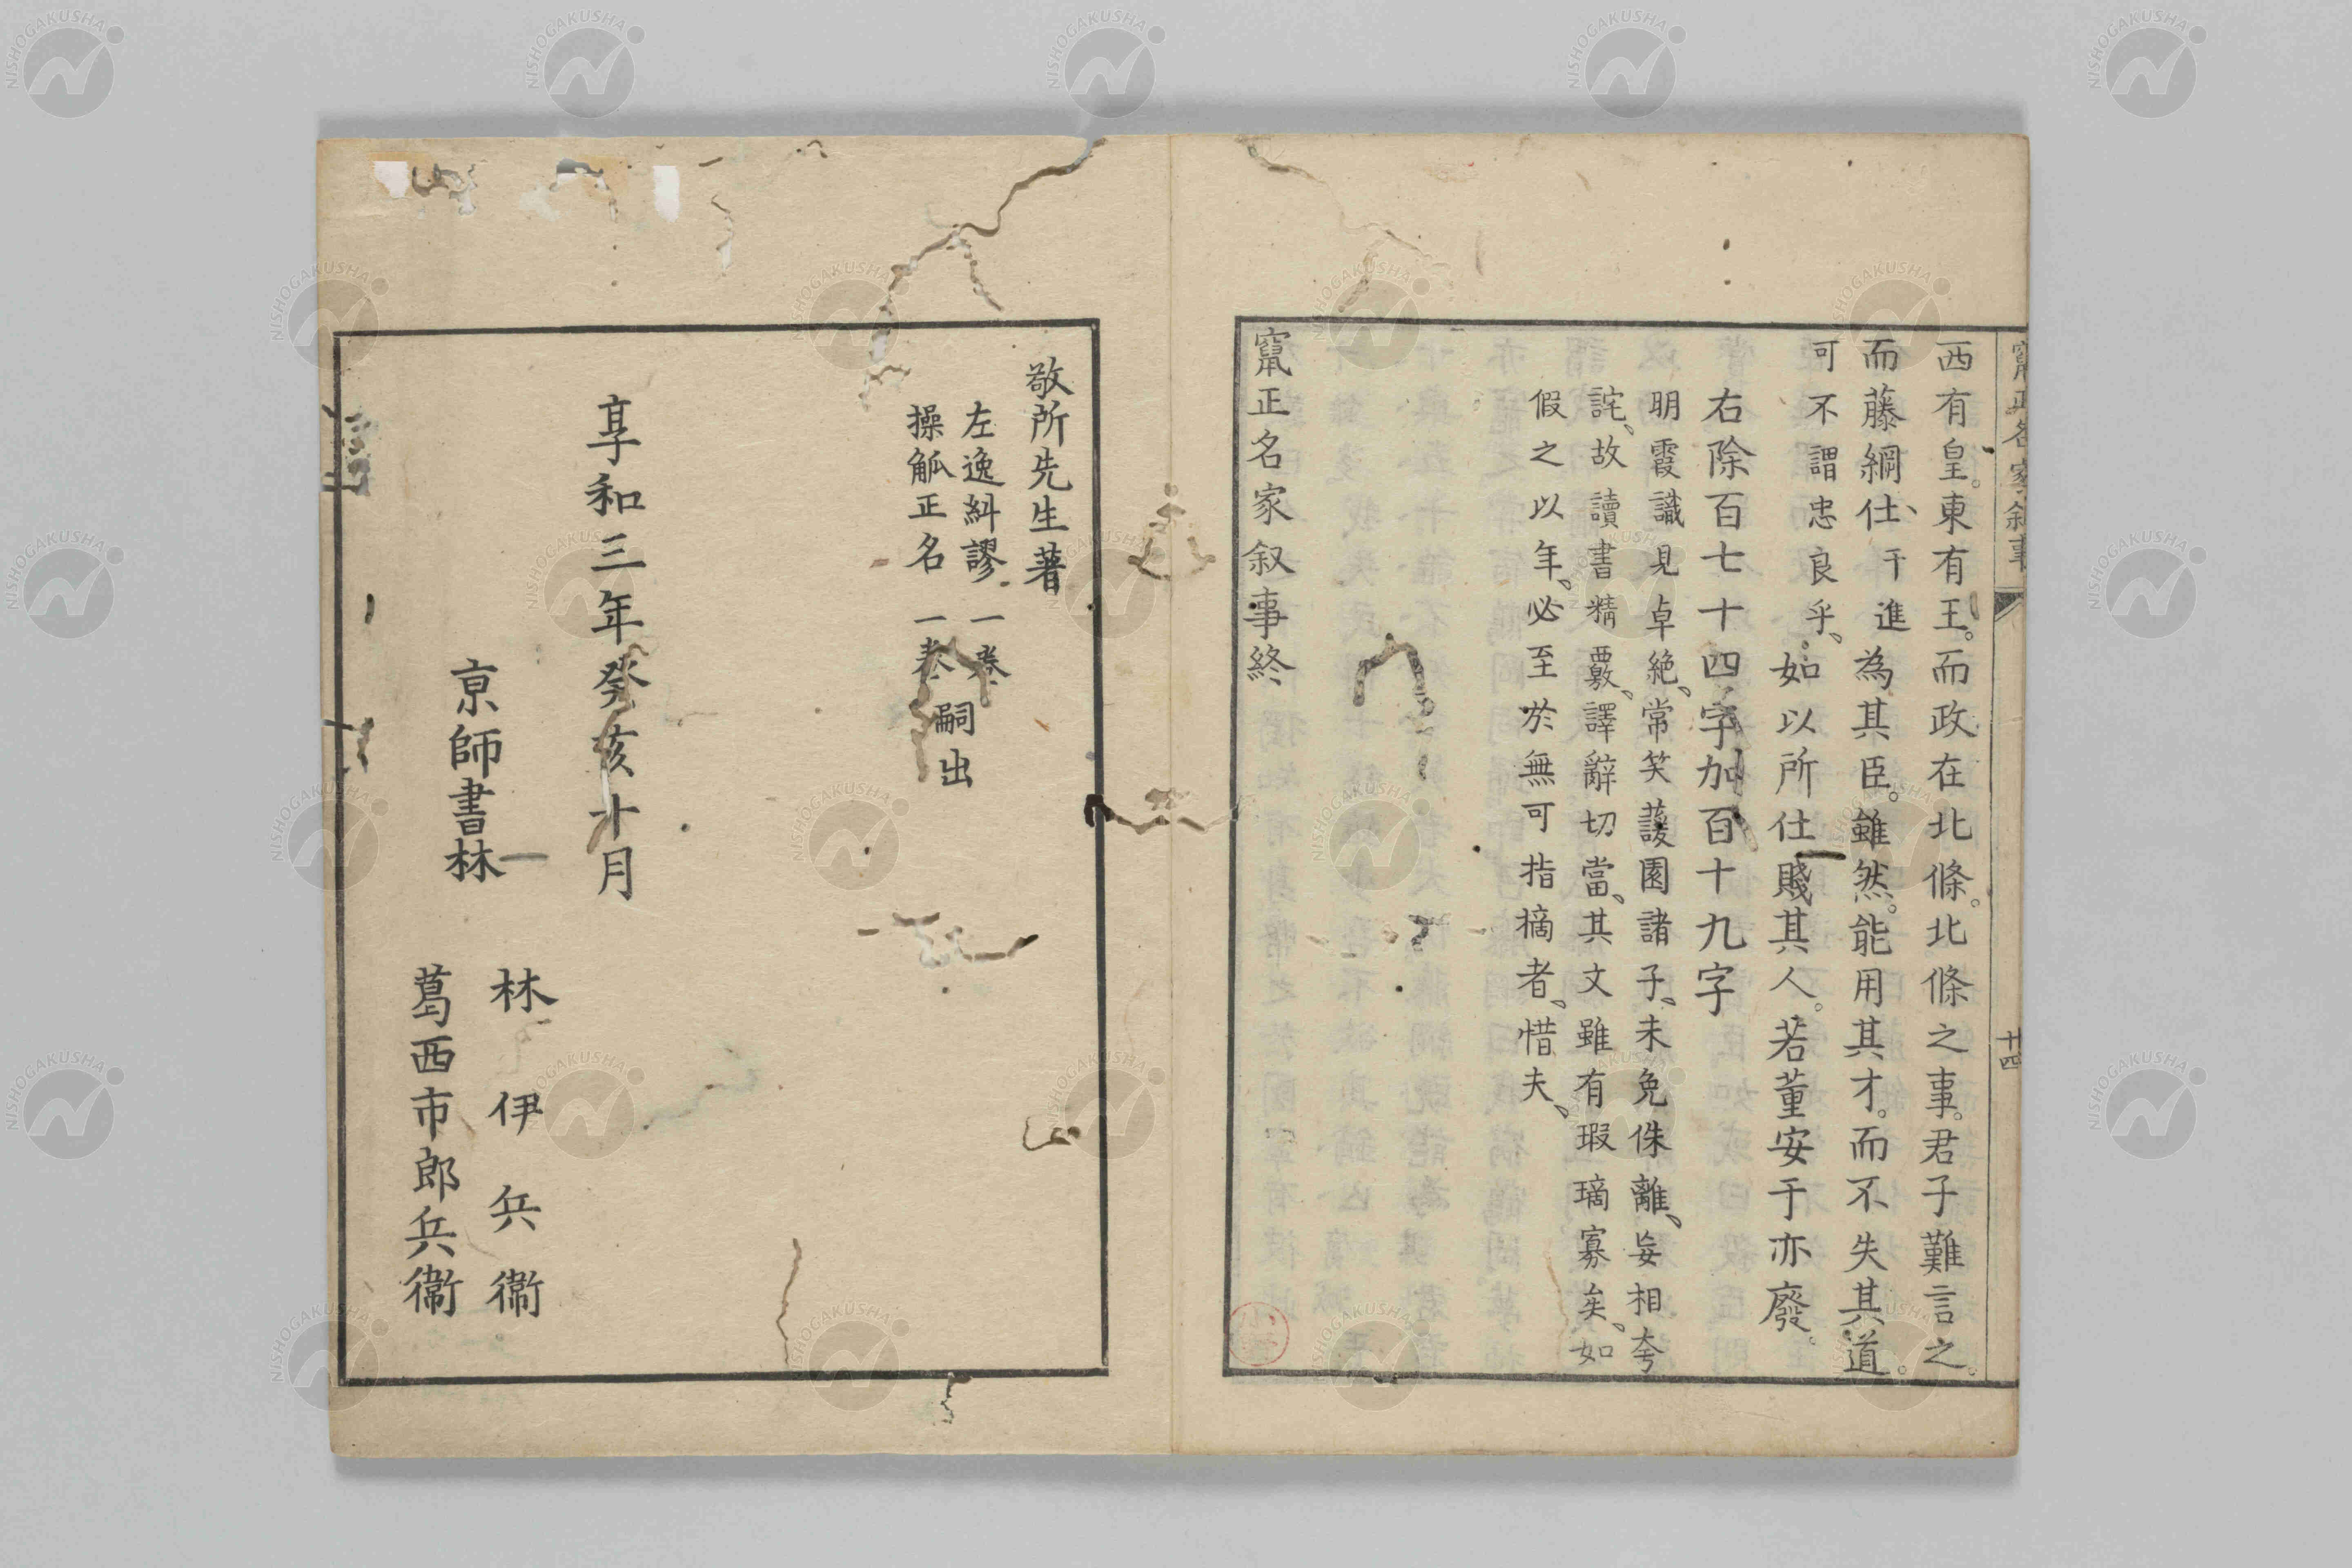 竄正名家叙事
十四
西有皇。東有王。而政在北條。北條之事。君子難言之。
而藤綱仕、于進為其臣。雖然。能用其才。而不失其道。
可不謂忠良乎、如以所仕賤其人。若董安于亦廢。
右除百七十四字加百十九字
明霞識見卓絶、常笑蘐園諸子、未免侏離、妄相夸
詫、故讀書精覈、譯辭切當、其文雖有瑕璃寡矣、如
假之以年、必至於無可指摘者、惜夫、
竄正名家叙事終
敬所先生著
左逸糾謬 一卷
操觚正名 一卷
嗣出
享和三年癸亥十月
京師書林
林伊兵衞
葛西市郎兵衞
NISHOGAKUSHA